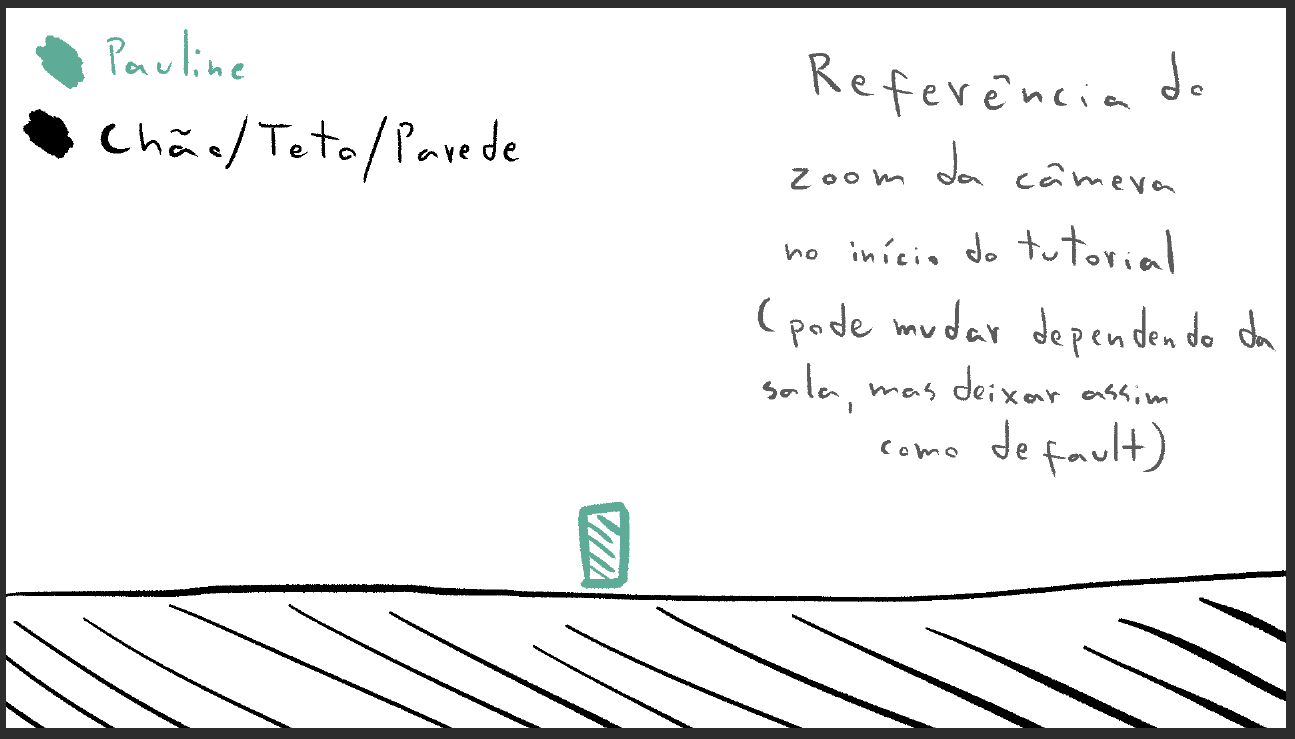 Pauline
Chão/Teto/Parede
Referência do
zoom da câmera
no início do tutorial
(pode mudar dependendo da
sala, mas deixar assim
como default)